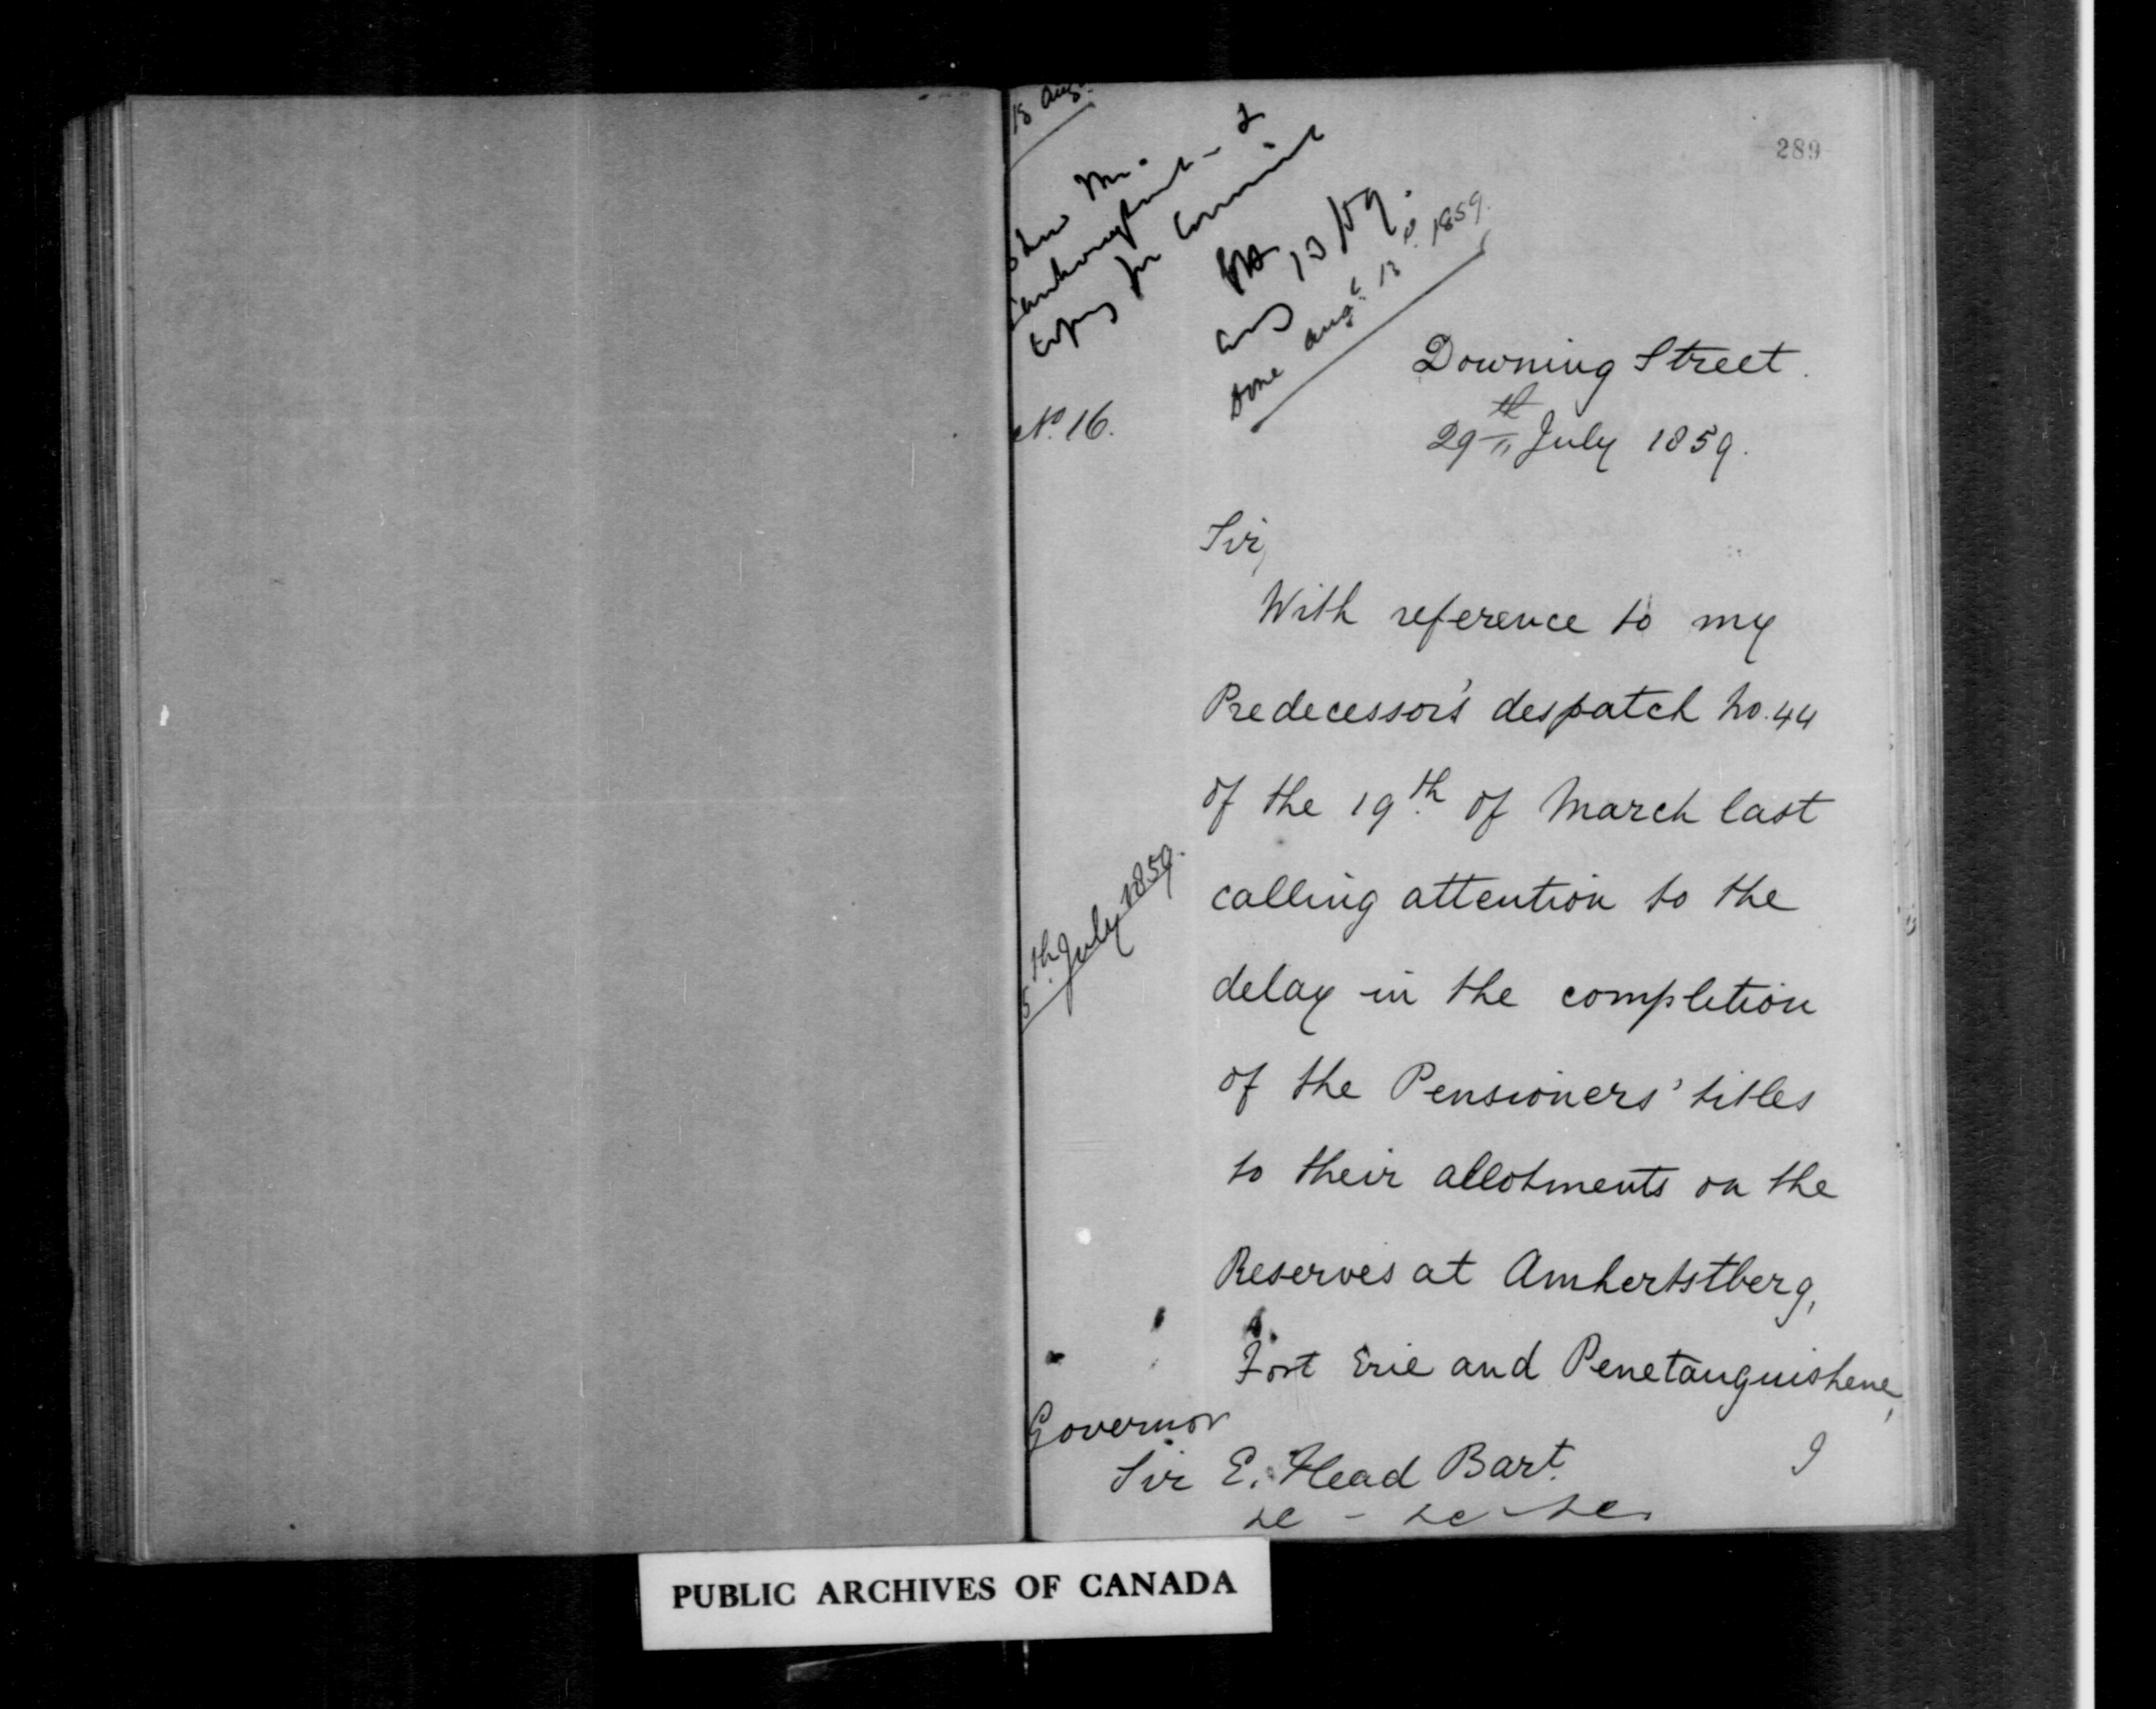 18 Aug.
289
Mr.
copy for
13
and
Done Augt. 13 1859.
No. 16.
Downing Street.
29th July 1859.
Sir,
With reference to my
Predecessor's despatch No. 44
of the 19th of March last
calling attention to the
delay in the completion
of the Pensioners' titles
to their allotments on the
Reserves at Amhertstberg,
Fort Erie and Penetanguishene,
I
5th July 1859.
Governor
Sir E. Head Bart.
&c - &c - &c.
PUBLIC ARCHIVES OF CANADA